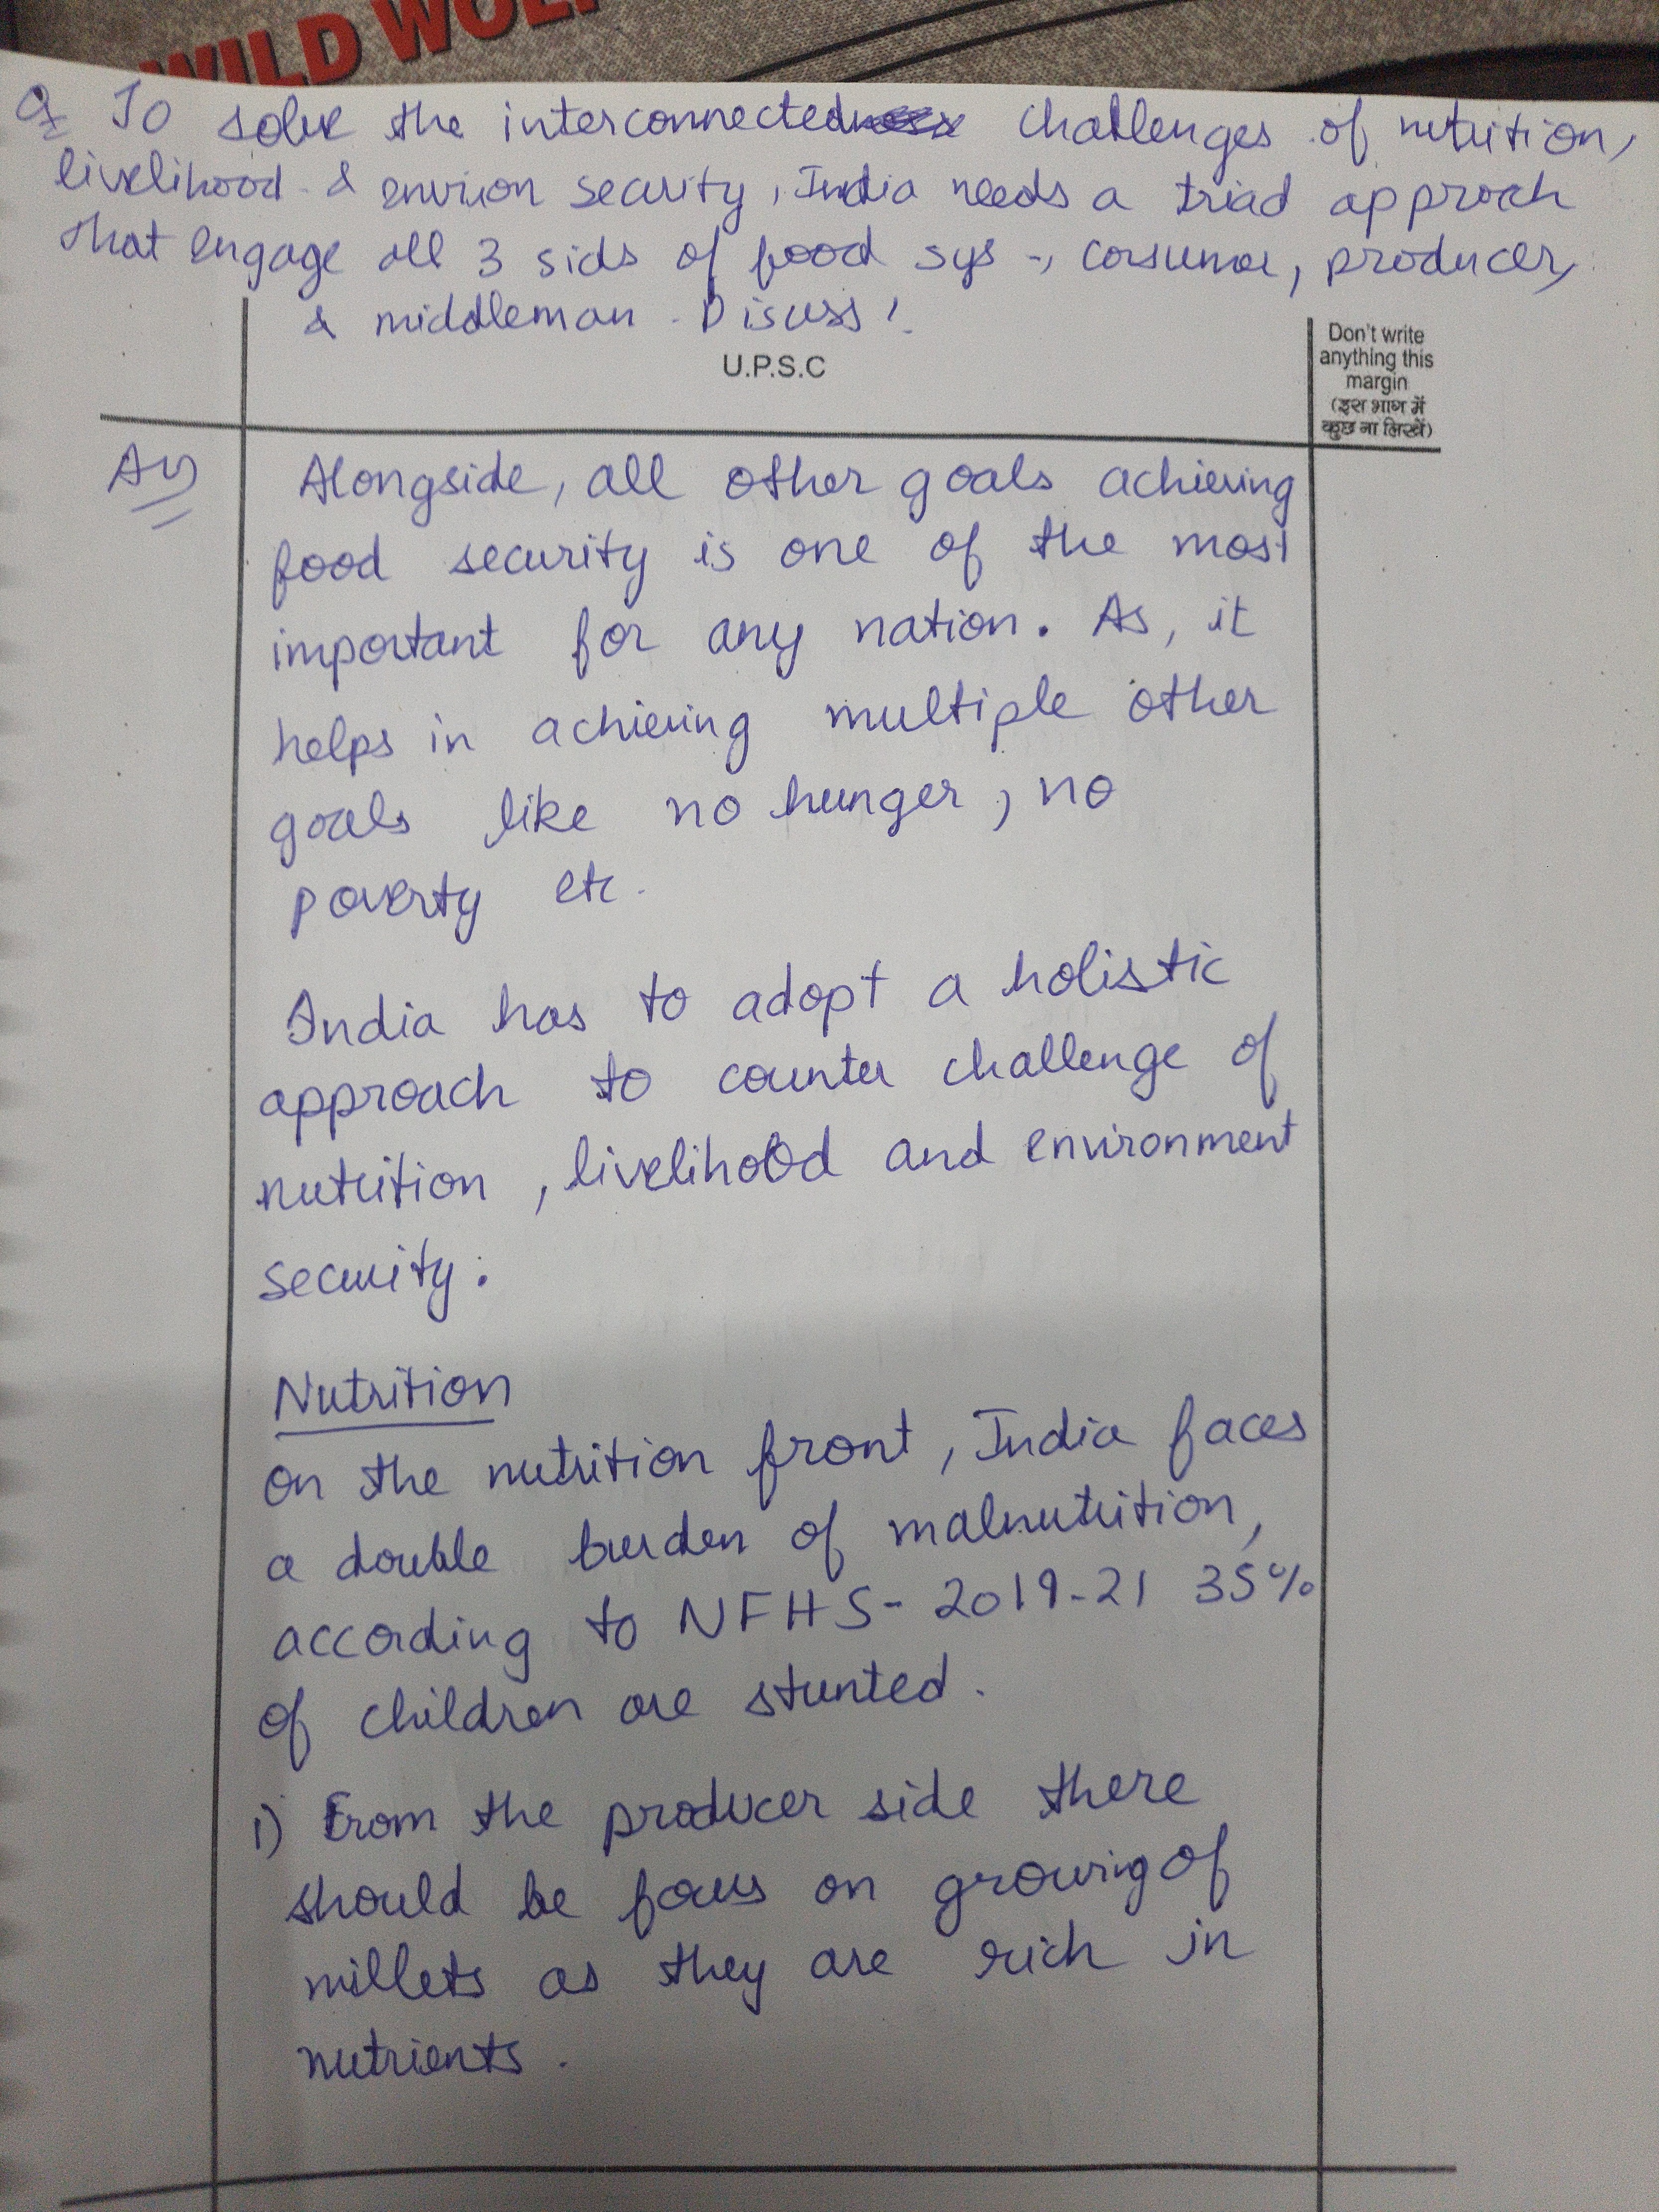 WILD WOLF
Q To solve the interconnected challenges of nutrition,
livelihood & environ security, India needs a triad approch
that engage all 3 sids of food sys -, consumer, producer,
& middleman. Discuss!
U.P.S.C
Don't write
anything this
margin
(इस भाग में
कुछ ना लिखें)
Ans Alongside, all other goals achieving
food security is one of the most
important for any nation. As, it
helps in achieving multiple other
goals like no hunger, no
poverty etc.
India has to adopt a holistic
approach to counter challenge of
nutrition, livelihood and environment
security.
Nutrition
on the nutrition front, India faces
a double burden of malnutrition,
according to NFHS- 2019-21 35%
of children are stunted.
1) From the producer side there
should be focus on growing of
millets as they are rich in
nutrients.